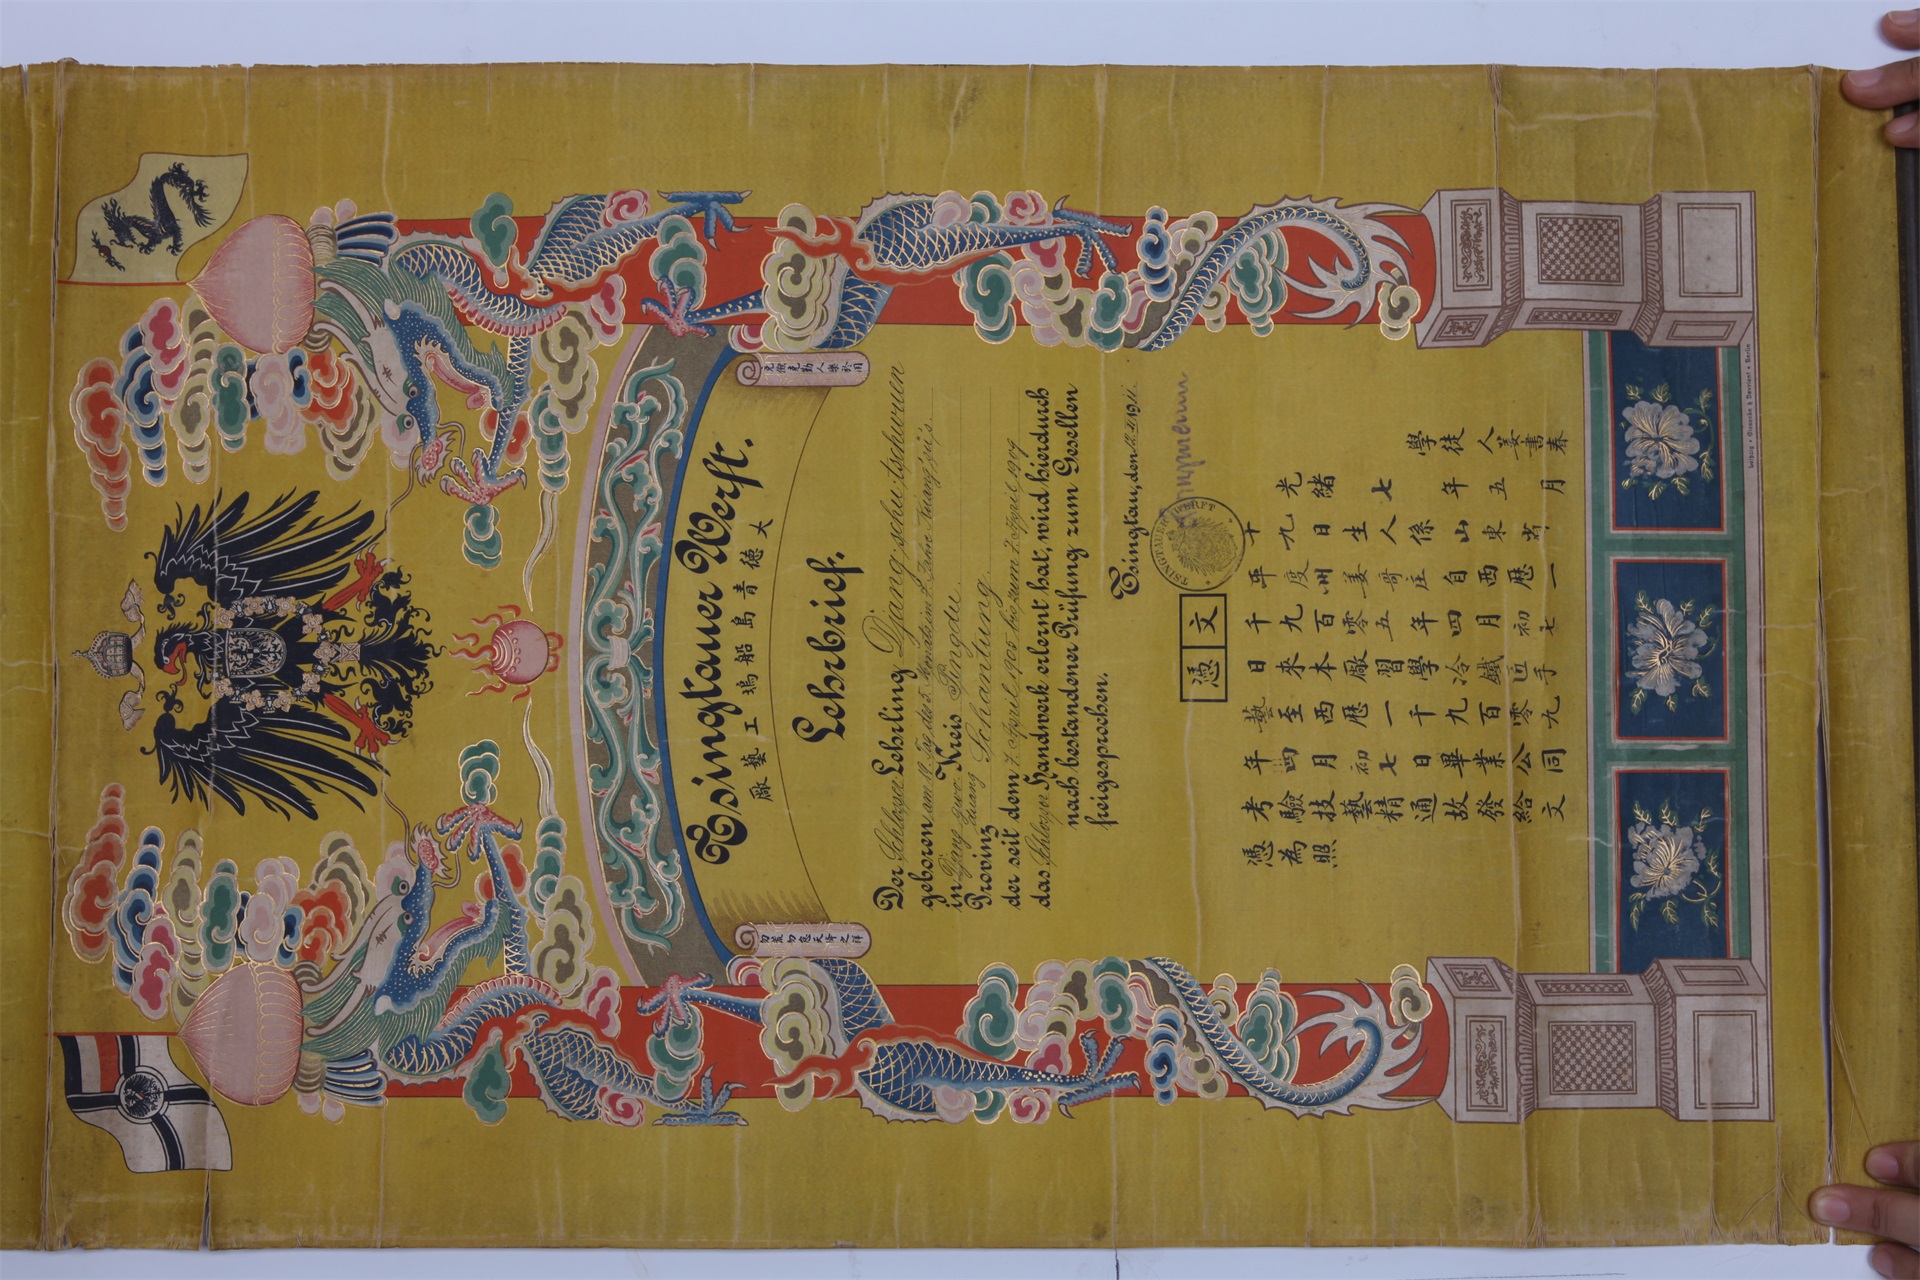 Tsingtauer Werft.
大德青島船塢工藝廠
克儉克勤人樂於用
勿荒勿怠天降之祥
Lehrbrief.
Der Schlosser Lehrling Djiang schu tschwuen
geboren am 18. Tag des 5. Monats im 7. Jahre Kuang hsü's
in Djang gwo Kreis Pingdu
Provinz Schantung
der seit dem 7. April 1905 bis zum 7. April 1909
das Schlosser Handwerk erlernt hat, wird hierdurch
nach bestandener Prüfung zum Gesellen
freigesprochen.
Tsingtau, den
TSINGTAUER WERFT
文憑
學徒人姜書春
光緒七年五月
十九日生人係山東省
平度州姜哥庄自西歷一
千九百零五年四月初七
日來本廠習學冷鐵匠手
藝至西歷一千九百零九
年四月初七日畢業公同
考驗技藝精通故發給文
憑為照
Leipzig • Giesecke & Devrient • Berlin